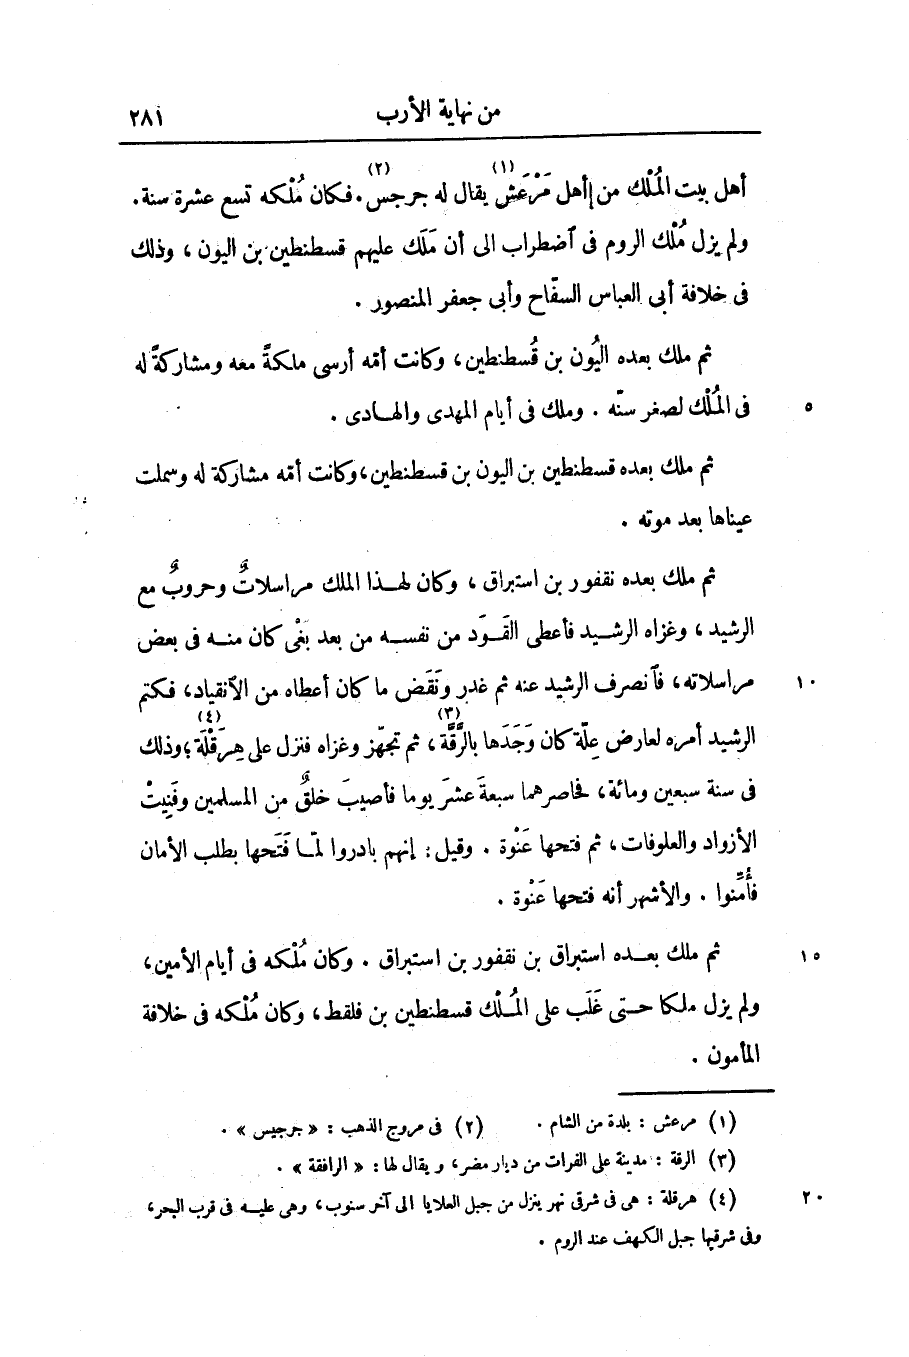 من نهاية الأرب ٢٨١
أهل بيت المُلْك من أهل مَرْعَش (١) يقال له جرجس (٢). فكان مُلْكه تسع عشرة سنة.
ولم يزل مُلْك الروم فى ٱضطراب الى أن مَلَك عليهم قسطنطين بن اليون ، وذلك
فى خلافة أبى العباس السفّاح وأبى جعفر المنصور .
ثم ملك بعده اليُون بن قُسطنطين، وكانت أمّه أرسى ملكةً معه ومشاركةً له
فى المُلْك لصغر سنّه . وملك فى أيام المهدى والهـادى . ٥
ثم ملك بعده قسطنطين بن اليون بن قسطنطين، وكانت أمّه مشاركة له وسملت
عيناها بعد موته .
ثم ملك بعده نقفور بن استبراق ، وكان لهـذا الملك مراسلاتٌ وحروبٌ مع
الرشيد ، وغزاه الرشـيد فأعطى القَـوَد من نفسـه من بعد بَغْى كان منـه فى بعض
مراسلاته، فٱنصرف الرشيد عنه ثم غدر ونَقَض ما كان أعطاه من الٱنقياد، فكتم ١٠
الرشيد أمره لعارض عِلّة كان وَجَدَها بالرَّقَّة (٣) ، ثم تجهّز وغزاه فنزل على هِرَقْلَة (٤) ؛ وذلك
فى سنة سبعين ومائة، فحاصرهما سبعةَ عشرَ يوما فأصيبَ خلقٌ من المسلمين وفَنِيتْ
الأزواد والعلوفات ، ثم فتحها عَنْوة . وقيل : إنهم بادروا لمّـا فَتَحها بطلب الأمان
فأُمِّنوا . والأشهر أنه فتحها عَنْوة .
ثم ملك بعـده استبراق بن نقفور بن استبراق . وكان مُلْكه فى أيام الأمين، ١٥
ولم يزل ملكا حـتى غَلَب على المُـلْك قسطنطين بن فلقط ، وكان مُلْكه فى خلافة
المأمون .
(١) مرعش : بلدة من الشام . (٢) فى مروج الذهب : « جرجيس » .
(٣) الرقة : مدينة على الفرات من ديار مضر، ويقال لها : « الرافقة » .
(٤) هرقلة : هى فى شرقى نهر ينزل من جبل العلايا الى آخر سنوب، وهى عليـه فى قرب البحر، ٢٠
وفى شرقيها جبل الكهف عند الروم .